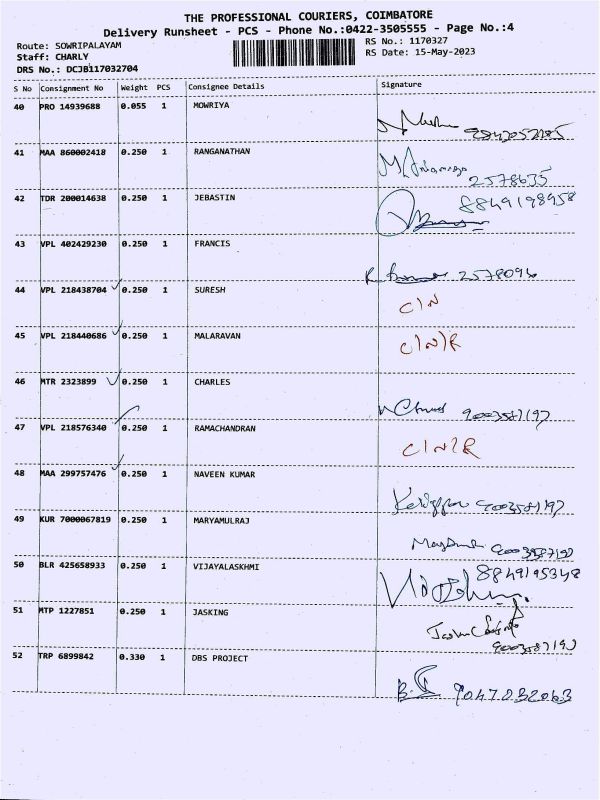 THE PROFESSIONAL COURIERS, COIMBATORE
Delivery Runsheet - PCS - Phone No.:0422-3505555 - Page No.:4
Route: SOWRIPALAYAM RS No.: 1170327
Staff: CHARLY RS Date: 15-May-2023
DRS No.: DCJB117032704
S No Consignment No Weight PCS Consignee Details Signature
40 PRO 14939688 0.055 1 MOWRIYA
41 MAA 860002418 0.250 1 RANGANATHAN
2578635
42 TDR 200014638 0.250 1 JEBASTIN 8849198958
43 VPL 402429230 0.250 1 FRANCIS
2578096
44 VPL 218438704 0.250 1 SURESH
C/N
45 VPL 218440686 0.250 1 MALARAVAN
C/N/R
46 MTR 2323899 0.250 1 CHARLES
47 VPL 218576340 0.250 1 RAMACHANDRAN
C/N/R
48 MAA 299757476 0.250 1 NAVEEN KUMAR
49 KUR 7000067819 0.250 1 MARYAMULRAJ
50 BLR 425658933 0.250 1 VIJAYALASKHMI 8849195348
51 MTP 1227851 0.250 1 JASKING
52 TRP 6899842 0.330 1 DBS PROJECT
9047032063